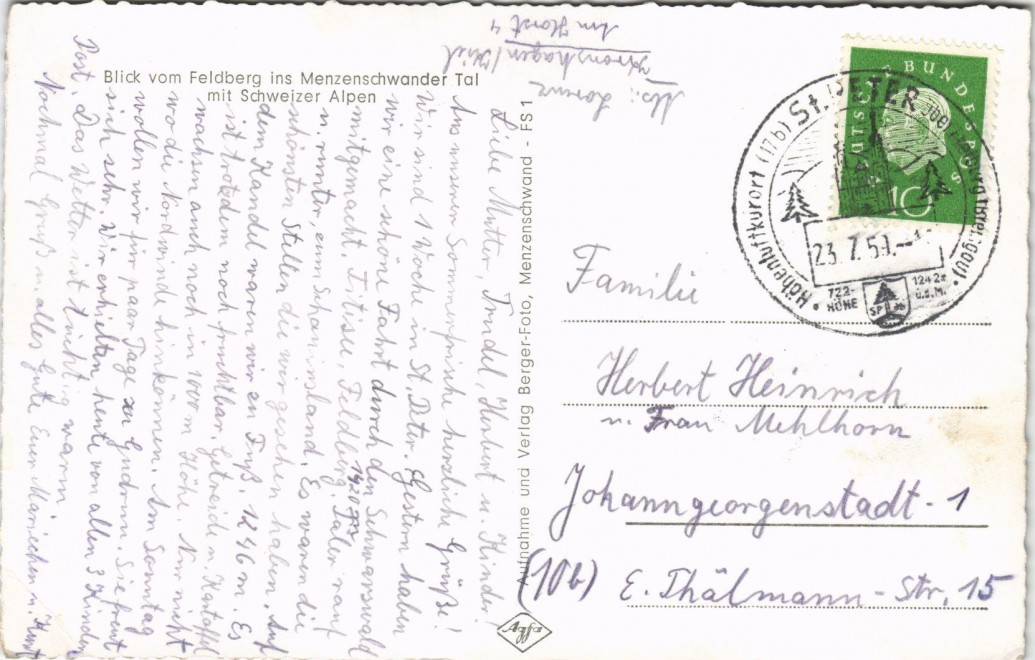 Blick vom Feldberg ins Menzenschwander Tal
mit Schweizer Alpen
Abs.: Lorenz
Kronshagen/Kiel
Am Horst 4
Liebe Mutter, Trudel, Herbert u. Kinder!
Aus unserer Sommerfrische herzliche Grüße!
Wir sind 1 Woche in St. Peter. Gestern haben
wir eine schöne Fahrt durch den Schwarzwald
mitgemacht. Titisee, Feldberg, Täler rauf
u. runter, zum Schauinsland. Es waren die
schönsten Stellen die wir gesehen haben. Auf
dem Kandel waren wir zu Fuß. 1246 m. Es
ist trotzdem noch fruchtbar. Getreide u. Kartoffel
wachsen auch noch in 1000 m Höhe. Nur nicht
wo die Nordwinde hinkönnen. Am Sonntag
wollen wir für paar Tage zu Gudrun. Sie freut
sich sehr. Wir erhielten heute von allen 3 Kindern
Post. Das Wetter ist tüchtig warm.
Nochmal Gruß u. alles Gute Euer Mariechen u. Kurt
Aufnahme und Verlag Berger-Foto, Menzenschwand - FS 1
Agfa
DEUTSCHE BUNDESPOST
10
Höhenluftkurort (17b) St. PETER
23.7.59.
722-
HÖHE
1242m
ü.d.M.
Familie
Herbert Heinrich
u. Frau Mehlhorn
Johanngeorgenstadt - 1
(10b) E. Thälmann-Str. 15